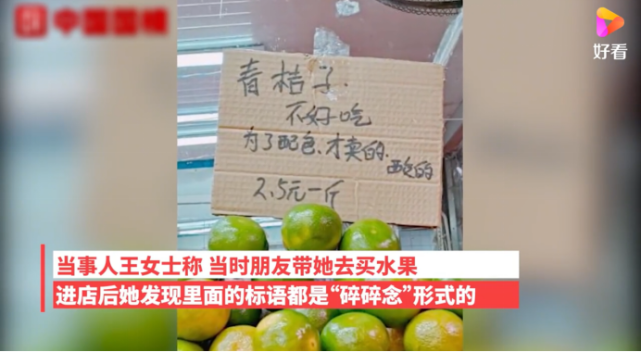 好看
青桔子
不好吃
为了配色、才卖的.
酸的
2.5元一斤
当事人王女士称 当时朋友带她去买水果
进店后她发现里面的标语都是“碎碎念”形式的